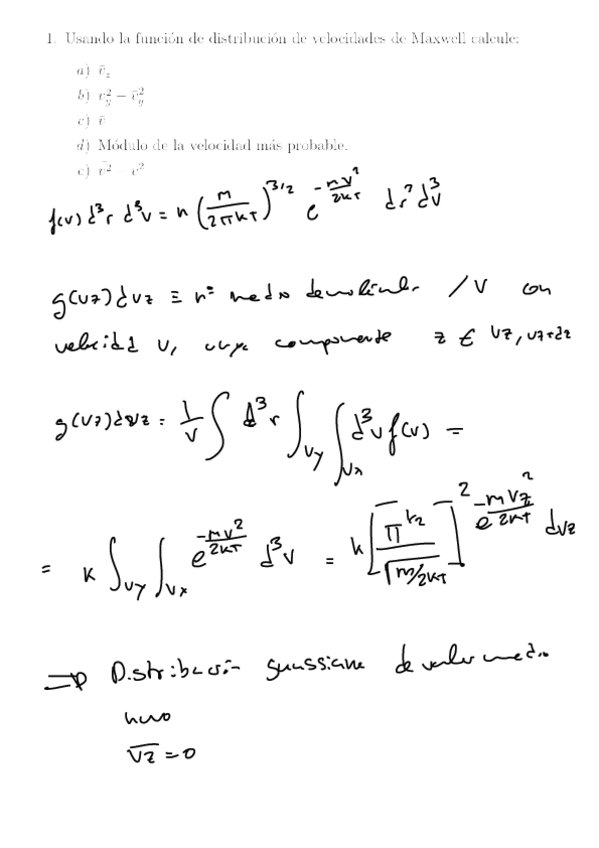 1. Usando la función de distribución de velocidades de Maxwell calcule:
a) v̄_z
b) v_y^2 − v̄_y^2
c) v̄
d) Módulo de la velocidad más probable.
e) v̄^2 − v^2
f(v) d^3r d^3v = n (m/2πkT)^{3/2} e^{-mv^2/2kT} d^3r d^3v
g(vz) dvz ≡ nº medio de molécul. /V con
velocidad v, cuya componente z ∈ vz, vz+dz
g(vz) dvz = 1/V ∫ d^3r ∫_{vy} ∫_{vx} d^3v f(v) =
= k ∫_{vy} ∫_{vx} e^{-mv^2/2kT} d^3v = k [π^{1/2}/√(m/2kT)]^2 e^{-mvz^2/2kT} dvz
⇒ Distribución gaussiana de valor medio
nulo
v̄z = 0